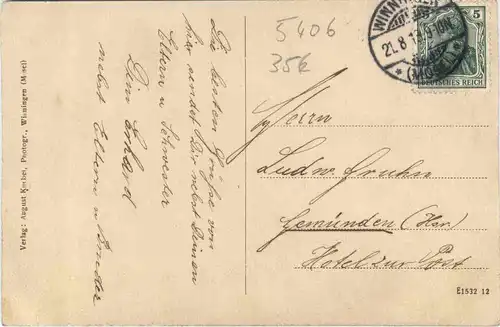 Die besten Grüße von
hier sendet Dir nebst Deinen
Eltern u Schwester
Dein Erhard
nebst Eltern u Bruder
Verlag: August Photogr., Winningen (Mosel)
5406
35€
WINNINGEN
21.8.13.9-10N.
* (MOSEL) *
5
DEUTSCHES REICH
Herrn
Ludw. Fruhn
Gemünden (Hsr)
Hotel zur Post
E1532 12